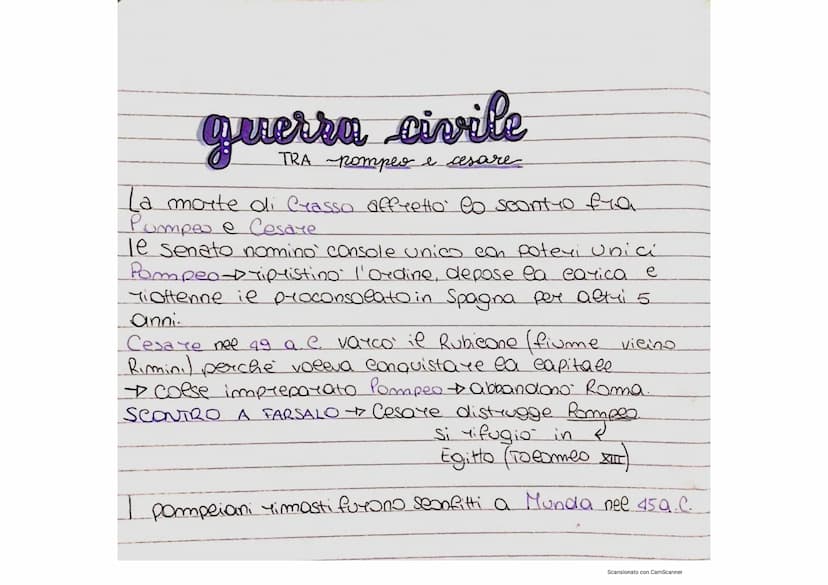 guerra civile
TRA pompeo e cesare
La morte di Crasso affrettò lo scontro fra
Pompeo e Cesare
Il senato nominò console unico con poteri unici
Pompeo → ripristinò l'ordine, depose la carica e
riottenne il proconsolato in Spagna per altri 5
anni.
Cesare nel 49 a.C. varcò il Rubicone (fiume vicino
Rimini) perché voleva conquistare la capitale
→ colse impreparato Pompeo → abbandonò Roma.
SCONTRO A FARSALO → Cesare distrugge Pompeo
si rifugiò in ↲
Egitto (Tolomeo XIII)
I pompeiani rimasti furono sconfitti a Munda nel 45 a.C.
Scansionato con CamScanner